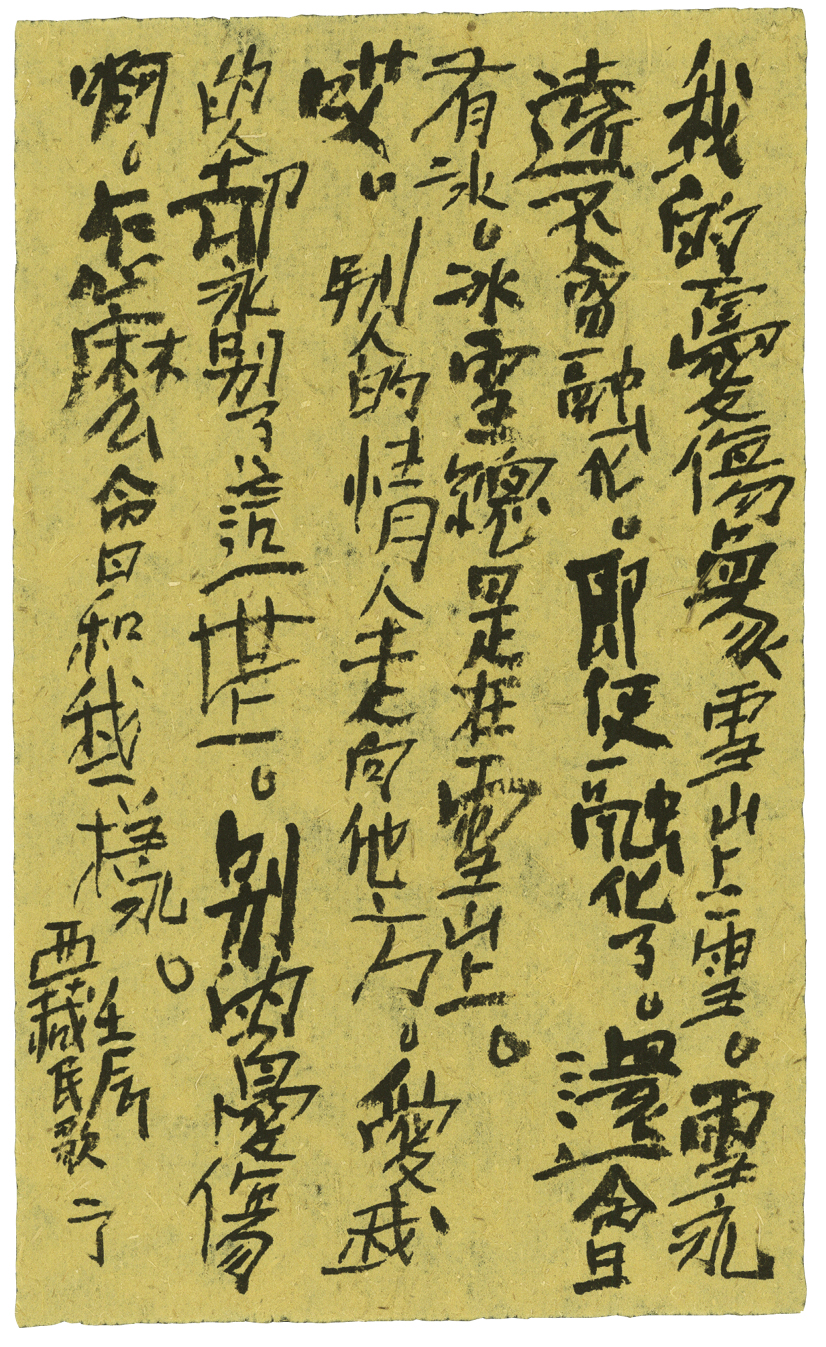 我的憂傷象雪山上雪。雪永
遠不會融化。即使融化了。還會
有冰。冰雪總是在雪山上。
哎。别人的情人走向他方。愛我
的人却永别了這世上。别的憂傷
啊。怎麼會和我一樣。
西藏民歌
壬辰
二丁